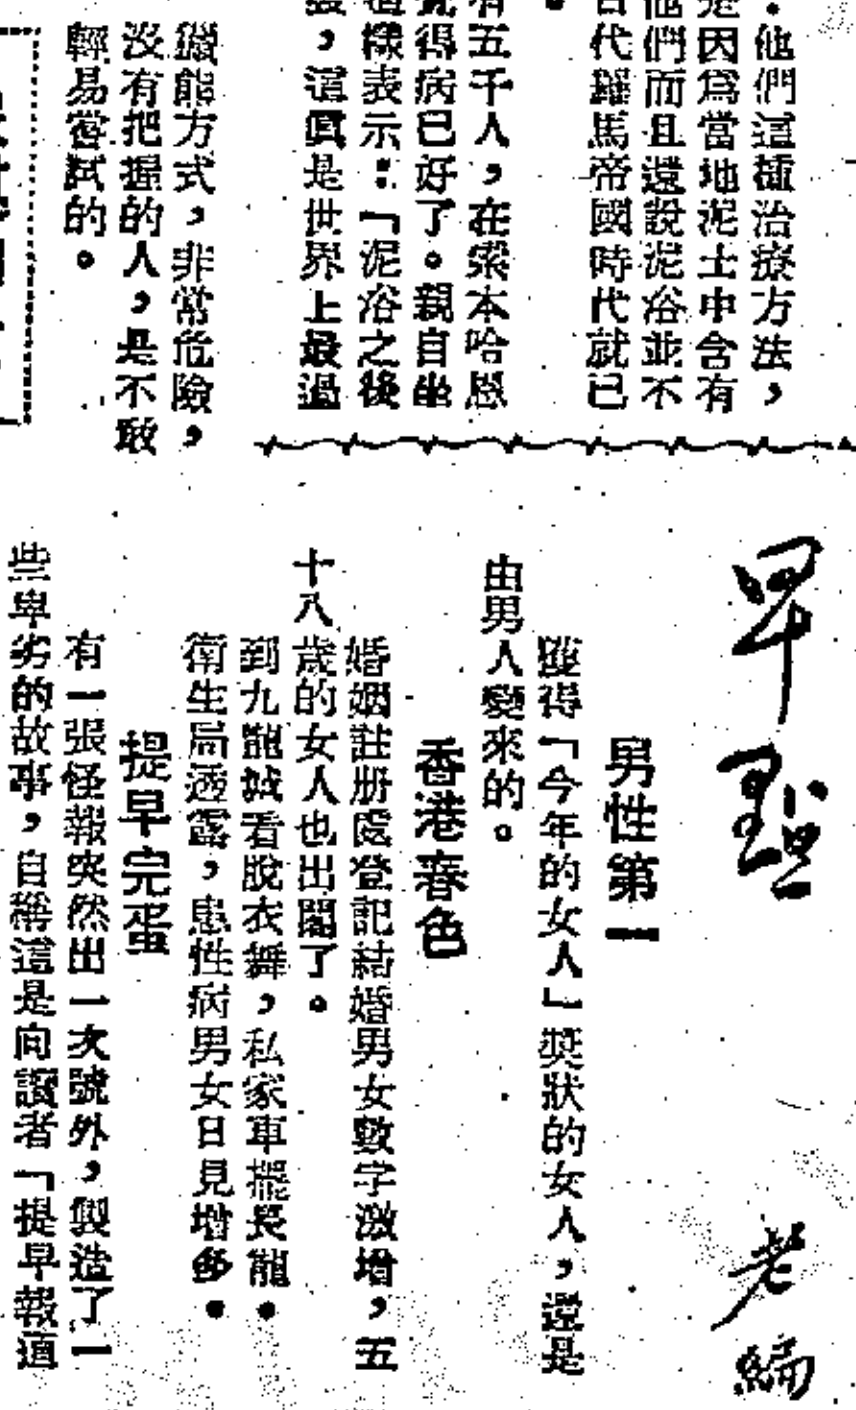 他們這種治療方法，
是因爲當地泥土中含有
他們而且還說泥浴並不
古代羅馬帝國時代就已
有五千人，在索本哈恩
覺得病已好了。親自坐
這樣表示：「泥浴之後
，這眞是世界上最過
獵熊方式，非常危險，
沒有把握的人，是不敢
輕易嘗試的。
早點
老編
男性第一
獲得「今年的女人」獎狀的女人，還是
由男人變來的。
香港春色
婚姻註册處登記結婚男女數字激增，五
十八歲的女人也出閣了。
到九龍城看脫衣舞，私家車擺長龍．
衛生局透露，患性病男女日見增多．
提早完蛋
有一張怪報突然出一次號外，製造了一
些卑劣的故事，自稱這是向讀者「提早報道